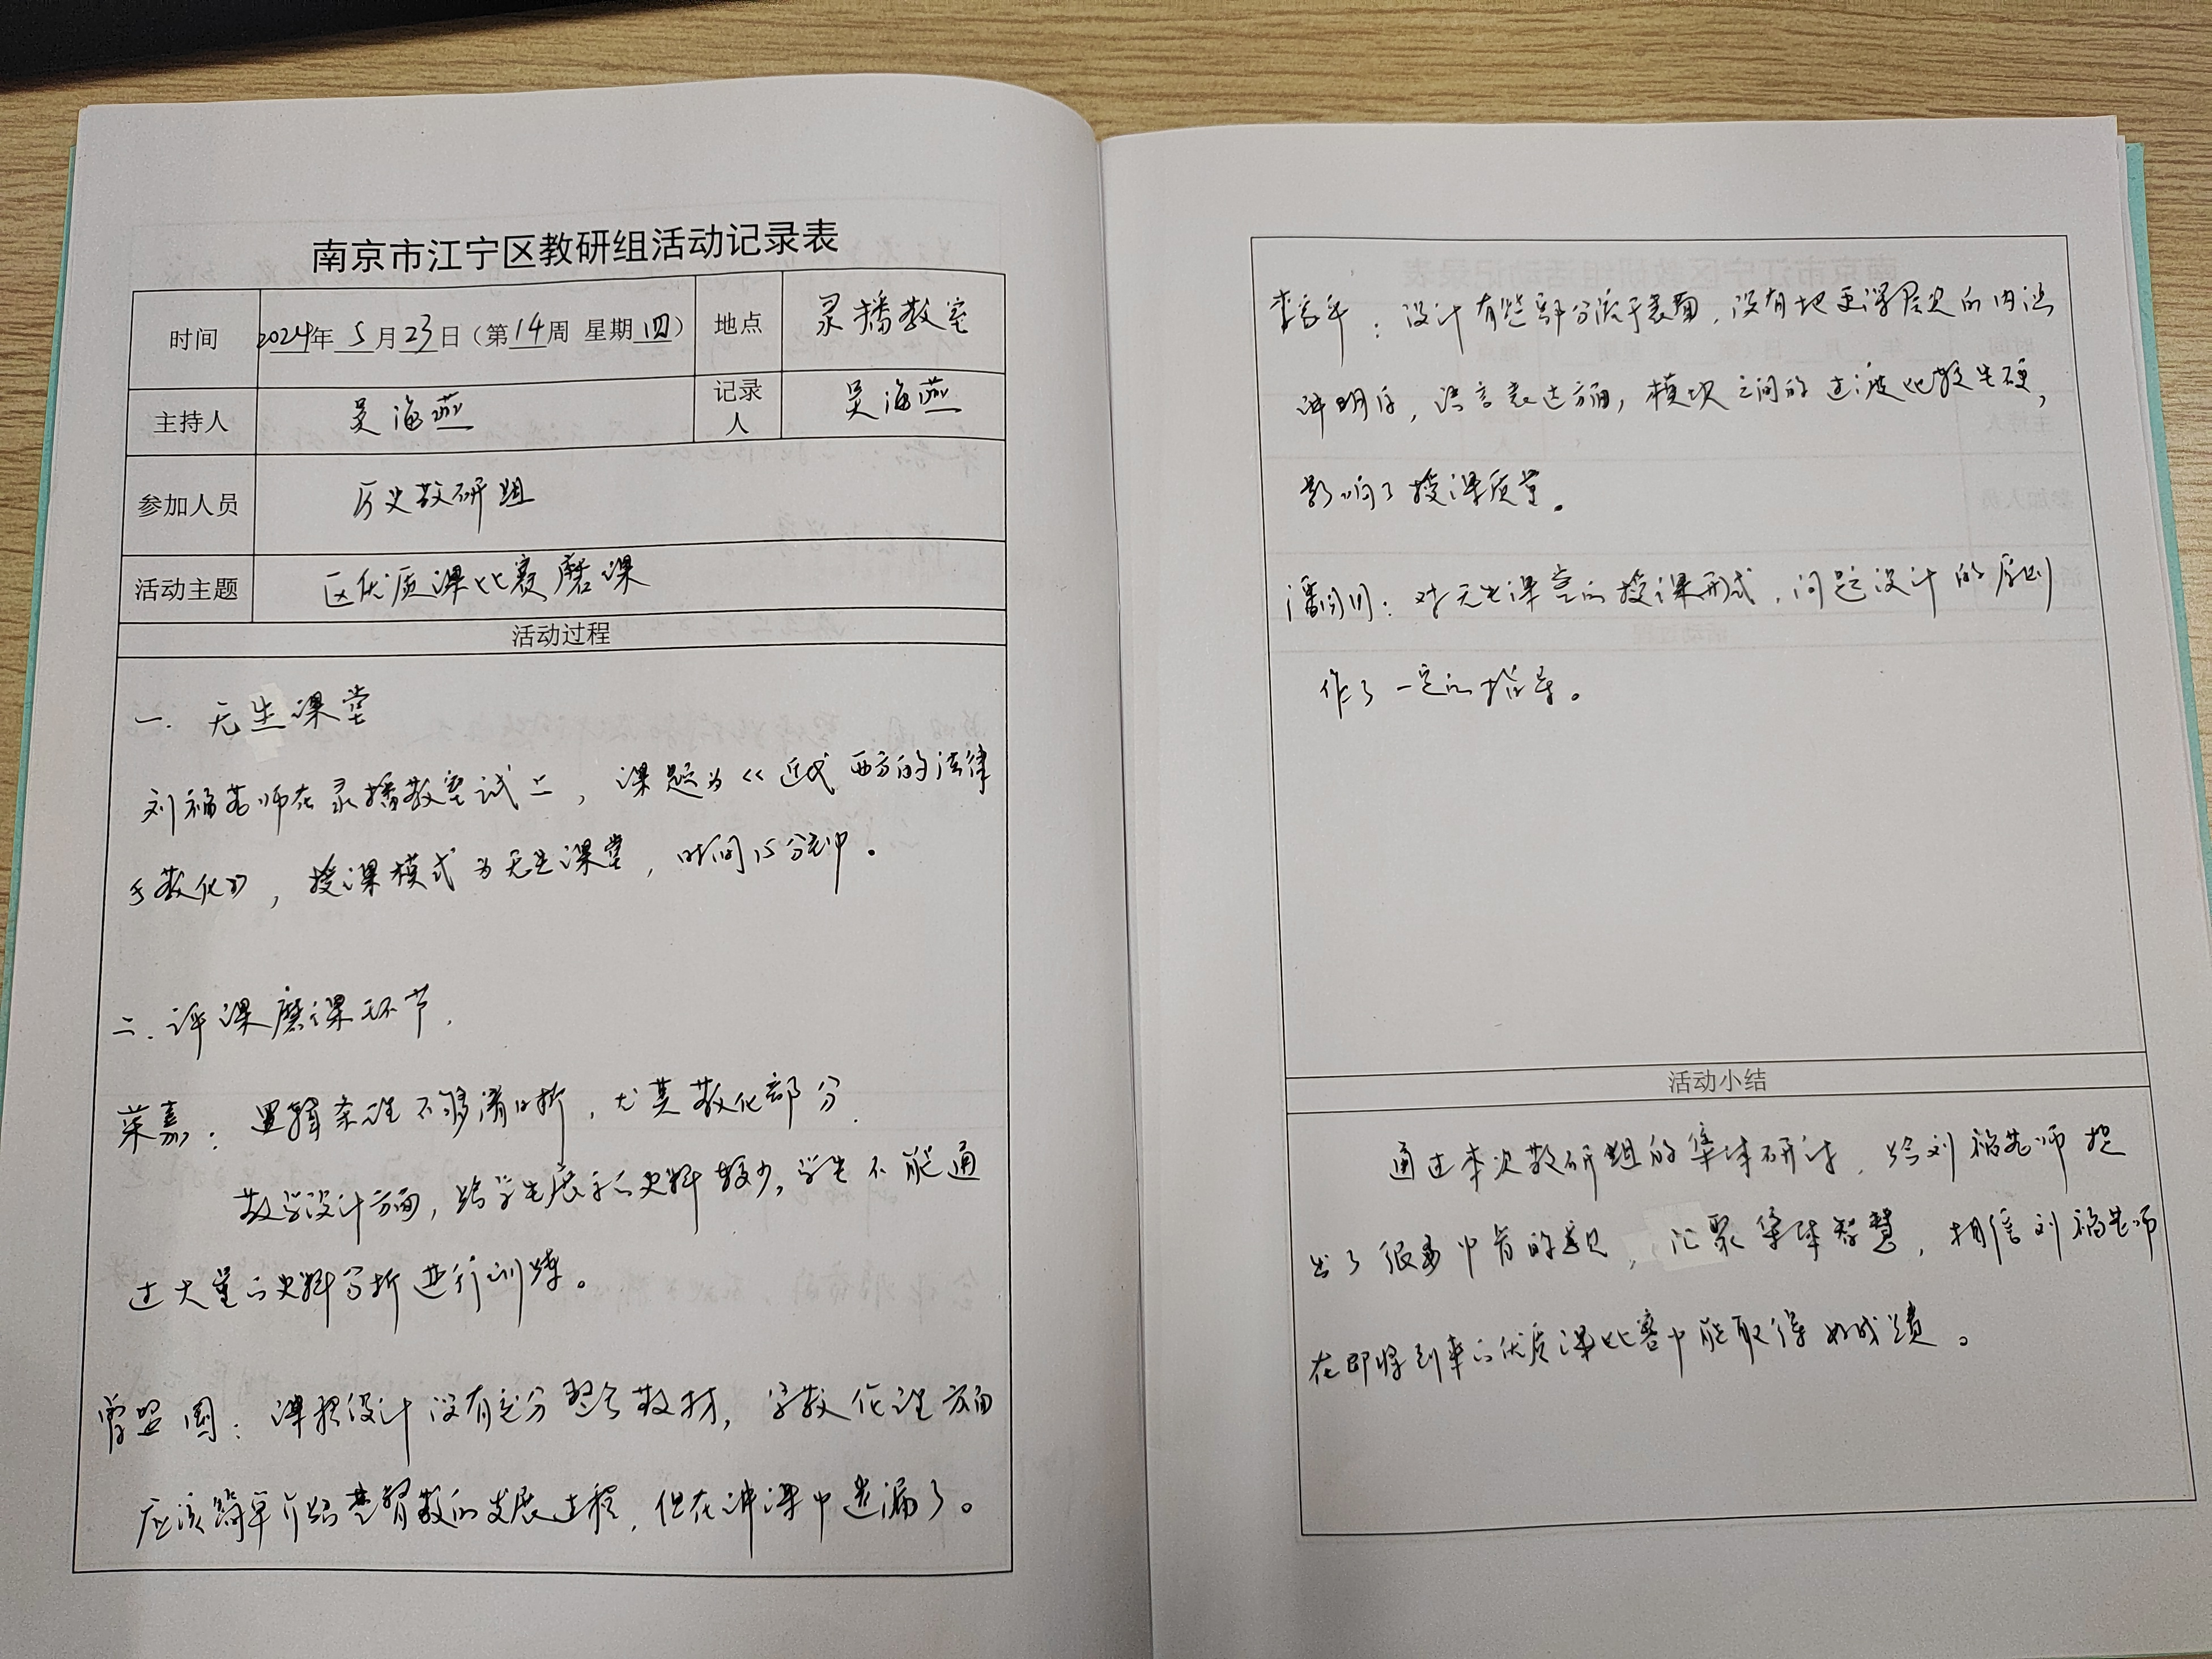 南京市江宁区教研组活动记录表
时间 2024年 5月23日（第14周 星期四） 地点 录播教室
主持人 吴海燕 记录人 吴海燕
参加人员 历史教研组
活动主题 区优质课比赛磨课
活动过程
一. 无生课堂
刘福老师在录播教室试上，课题为《近代西方的法律
与教化》，授课模式为无生课堂，时间15分钟。
二. 评课磨课环节.
荣嘉：逻辑条理不够清晰，尤其教化部分.
教学设计方面，给学生展示的史料较少，学生不能通
过大量的史料分析进行训练。
曾盟国：课程设计没有充分整合教材，宗教伦理方面
应该简单介绍基督教的发展过程，但在讲课中遗漏了。
：设计有些部分流于表面，没有把更深层次的内涵
讲明白，语言表达方面，模块之间的过渡比较生硬，
影响了授课质量。
潘：对无生课堂的授课形式，问题设计的原则
作了一定的指导。
活动小结
通过本次教研组的集体研讨，给刘福老师提
出了很多中肯的意见，汇聚集体智慧，相信刘福老师
在即将到来的优质课比赛中能取得好成绩。